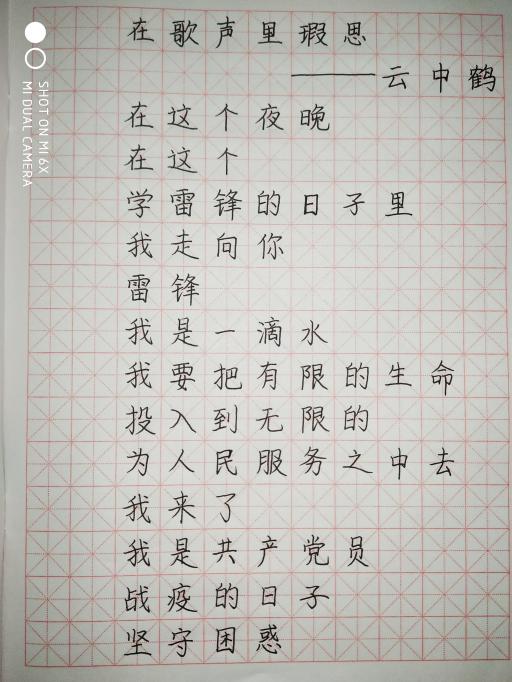 在歌声里瑕思
——云中鹤
在这个夜晚
在这个
学雷锋的日子里
我走向你
雷锋
我是一滴水
我要把有限的生命
投入到无限的
为人民服务之中去
我来了
我是共产党员
战疫的日子
坚守困惑
SHOT ON MI 6X
MI DUAL CAMERA